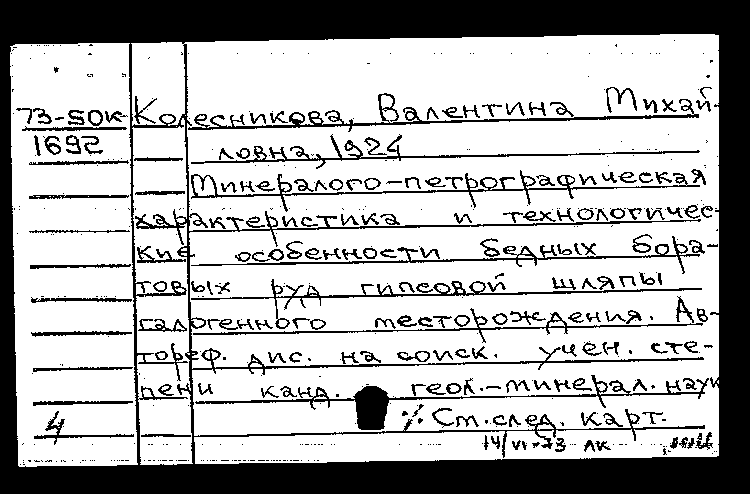 73-50к Колесникова, Валентина Михай-
1692 ловна, 1924
Минералого-петрографическая
характеристика и технологичес-
кие особенности бедных бора-
товых руд гипсовой шляпы
галогенного месторождения. Ав-
тореф. дис. на соиск. учен. сте-
пени канд. геол.-минерал. наук
4 ٪ См. след. карт.
14/VI-73 ЛК